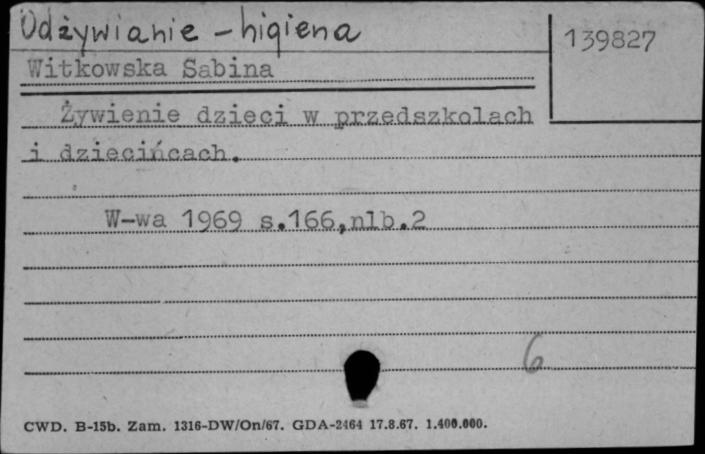 Odżywianie - higiena
139827
Witkowska Sabina
Żywienie dzieci w przedszkolach
i dziecińcach.
W-wa 1969 s.166,nlb.2
6
CWD. B-15b. Zam. 1316-DW/On/67. GDA-2464 17.8.67. 1.400.000.